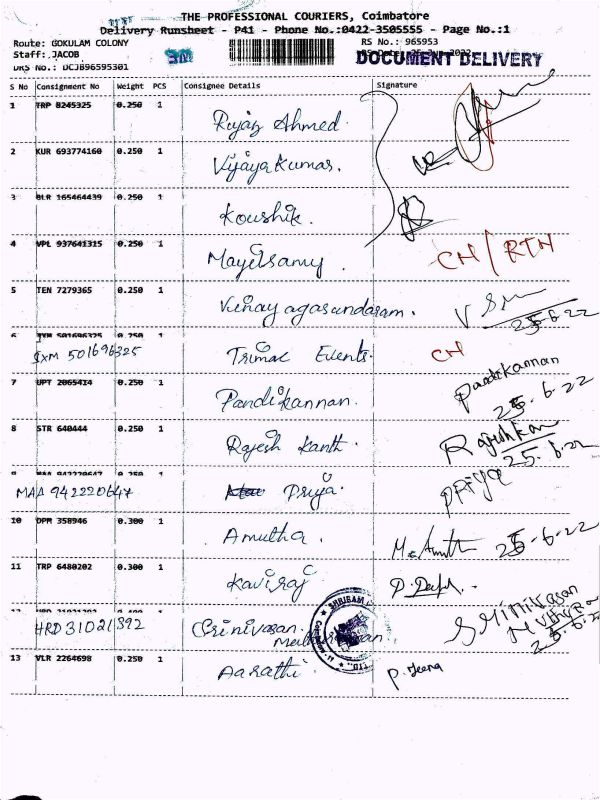 THE PROFESSIONAL COURIERS, Coimbatore
Delivery Runsheet - P41 - Phone No.:0422-3505555 - Page No.:1
Route: GOKULAM COLONY RS No.: 965953
Staff: JACOB
DRS No.: DCJB96595301 DOCUMENT DELIVERY
S No Consignment No Weight PCS Consignee Details Signature
1 TRP 8245325 0.250 1 Riyaz Ahmed
2 KUR 693774160 0.250 1 Vijayakumar.
3 BLR 165464439 0.250 1 Koushik.
4 VPL 937641315 0.250 1 Mayilsamy. CH/RTN
5 TEN 7279365 0.250 1 Vinayagasundaram. 25-6-22
6 IXM 501696325 0.250 1 Trimac Events. CH
IXM 501696325
7 UPT 2065414 0.250 1 Pandikannan. Pandikannan 25-6-22
8 STR 640444 0.250 1 Rajesh Kanth. 25.6.22
9 MAA 942220647 0.250 1 Priya. Priya
MAA 942220647
10 DPM 358946 0.300 1 Amutha. 25-6-22
11 TRP 6480202 0.300 1 Kaviraj
HRD 31021392 Srinivasan. Srinivasan
13 VLR 2264698 0.250 1 Aarathi. P. Jeena